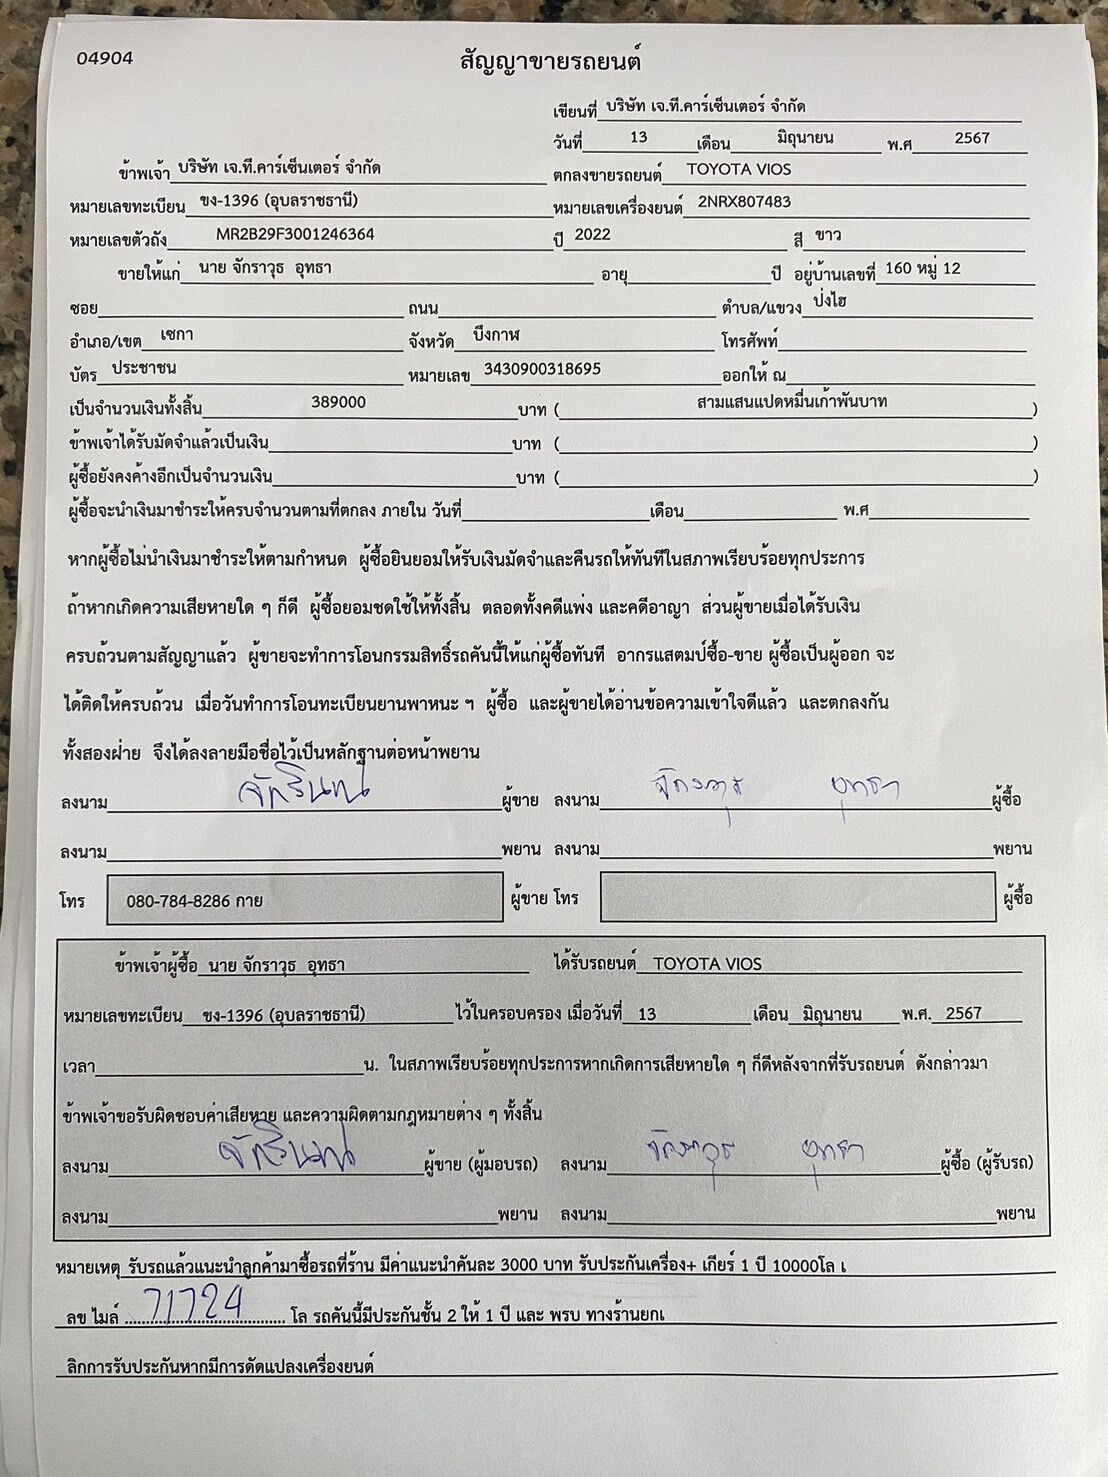 04904
สัญญาขายรถยนต์
เขียนที่ บริษัท เจ.ที.คาร์เซ็นเตอร์ จำกัด
วันที่ 13 เดือน มิถุนายน พ.ศ 2567
ข้าพเจ้า บริษัท เจ.ที.คาร์เซ็นเตอร์ จำกัด ตกลงขายรถยนต์ TOYOTA VIOS
หมายเลขทะเบียน ขง-1396 (อุบลราชธานี) หมายเลขเครื่องยนต์ 2NRX807483
หมายเลขตัวถัง MR2B29F3001246364 ปี 2022 สี ขาว
ขายให้แก่ นาย จักราวุธ อุทธา อายุ ปี อยู่บ้านเลขที่ 160 หมู่ 12
ซอย ถนน ตำบล/แขวง ป่งไฮ
อำเภอ/เขต เซกา จังหวัด บึงกาฬ โทรศัพท์
บัตร ประชาชน หมายเลข 3430900318695 ออกให้ ณ
เป็นจำนวนเงินทั้งสิ้น 389000 บาท ( สามแสนแปดหมื่นเก้าพันบาท )
ข้าพเจ้าได้รับมัดจำแล้วเป็นเงิน บาท ( )
ผู้ซื้อยังคงค้างอีกเป็นจำนวนเงิน บาท ( )
ผู้ซื้อจะนำเงินมาชำระให้ครบจำนวนตามที่ตกลง ภายใน วันที่ เดือน พ.ศ
หากผู้ซื้อไม่นำเงินมาชำระให้ตามกำหนด ผู้ซื้อยินยอมให้รับเงินมัดจำและคืนรถให้ทันทีในสภาพเรียบร้อยทุกประการ
ถ้าหากเกิดความเสียหายใด ๆ ก็ดี ผู้ซื้อยอมชดใช้ให้ทั้งสิ้น ตลอดทั้งคดีแพ่ง และคดีอาญา ส่วนผู้ขายเมื่อได้รับเงิน
ครบถ้วนตามสัญญาแล้ว ผู้ขายจะทำการโอนกรรมสิทธิ์รถคันนี้ให้แก่ผู้ซื้อทันที อากรแสตมป์ซื้อ-ขาย ผู้ซื้อเป็นผู้ออก จะ
ได้ติดให้ครบถ้วน เมื่อวันทำการโอนทะเบียนยานพาหนะ ฯ ผู้ซื้อ และผู้ขายได้อ่านข้อความเข้าใจดีแล้ว และตกลงกัน
ทั้งสองฝ่าย จึงได้ลงลายมือชื่อไว้เป็นหลักฐานต่อหน้าพยาน
ลงนาม ผู้ขาย ลงนาม จักราวุธ อุทธา ผู้ซื้อ
ลงนาม พยาน ลงนาม พยาน
โทร 080-784-8286 กาย ผู้ขาย โทร ผู้ซื้อ
ข้าพเจ้าผู้ซื้อ นาย จักราวุธ อุทธา ได้รับรถยนต์ TOYOTA VIOS
หมายเลขทะเบียน ขง-1396 (อุบลราชธานี) ไว้ในครอบครอง เมื่อวันที่ 13 เดือน มิถุนายน พ.ศ. 2567
เวลา น. ในสภาพเรียบร้อยทุกประการหากเกิดการเสียหายใด ๆ ก็ดีหลังจากที่รับรถยนต์ ดังกล่าวมา
ข้าพเจ้าขอรับผิดชอบค่าเสียหาย และความผิดตามกฎหมายต่าง ๆ ทั้งสิ้น
ลงนาม ผู้ขาย (ผู้มอบรถ) ลงนาม จักราวุธ อุทธา ผู้ซื้อ (ผู้รับรถ)
ลงนาม พยาน ลงนาม พยาน
หมายเหตุ รับรถแล้วแนะนำลูกค้ามาซื้อรถที่ร้าน มีค่าแนะนำคันละ 3000 บาท รับประกันเครื่อง+ เกียร์ 1 ปี 10000โล เ
ลข ไมล์ 71724 โล รถคันนี้มีประกันชั้น 2 ให้ 1 ปี และ พรบ ทางร้านยกเ
ลิกการรับประกันหากมีการดัดแปลงเครื่องยนต์